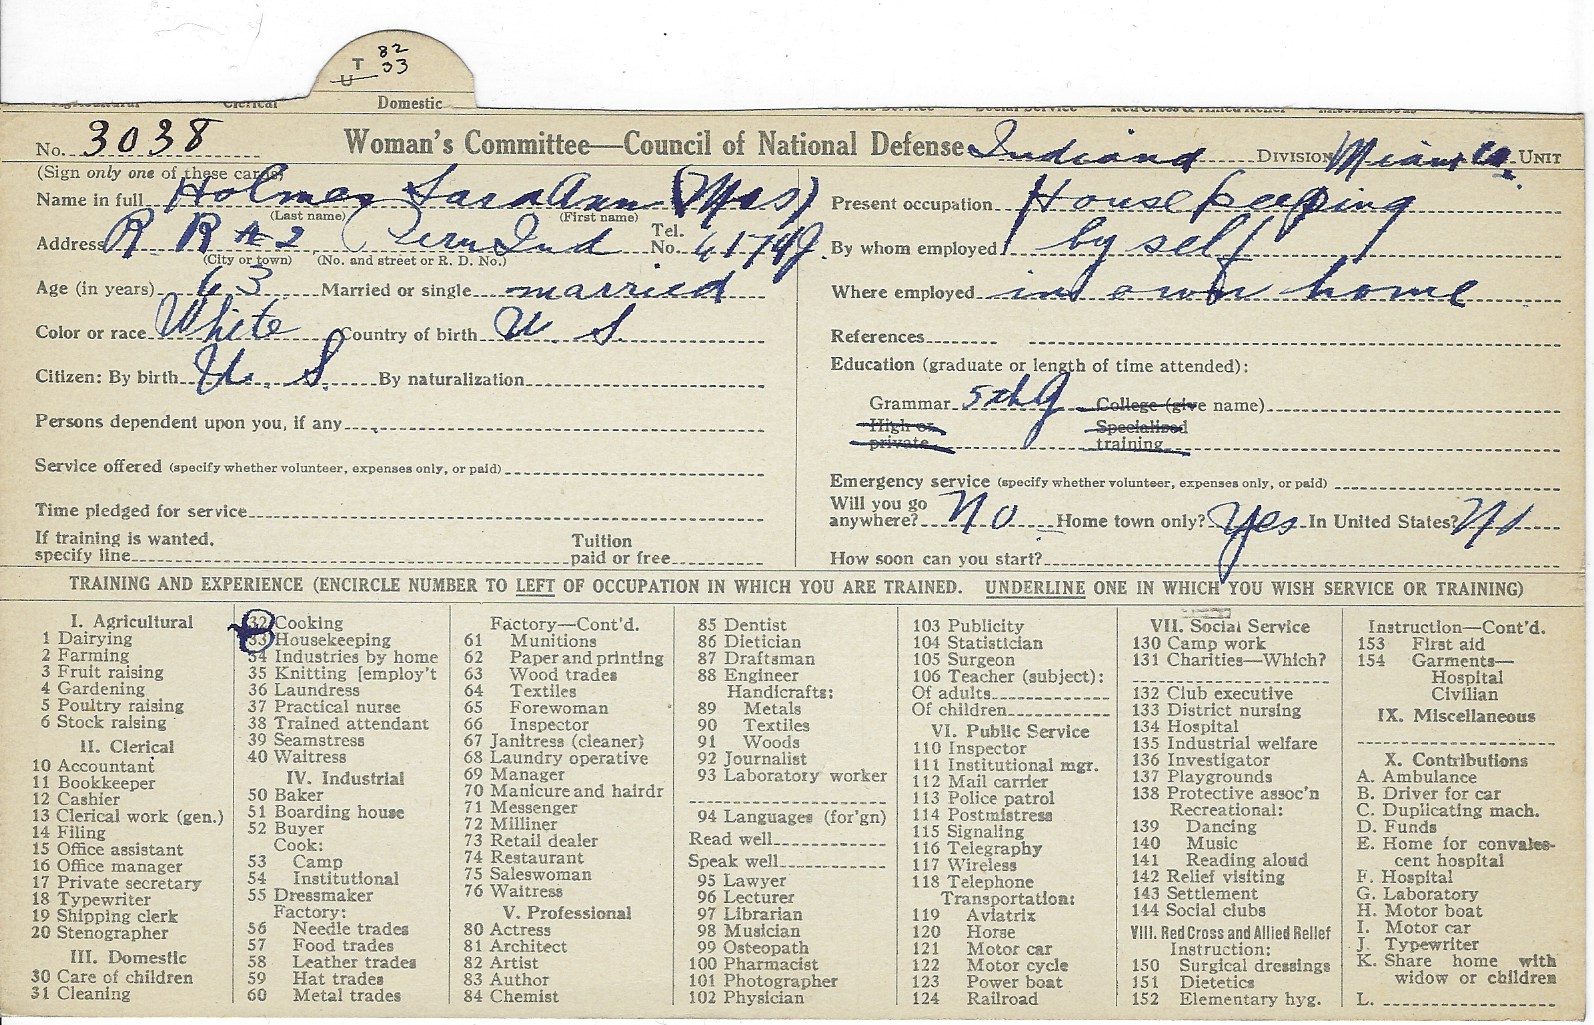 T 82
U 33
Domestic
No. 3038 Woman's Committee—Council of National Defense Indiana Division Miami Co. Unit
(Sign only one of these cards)
Name in full Holmes Sara Ann (Mrs) Present occupation Housekeeping
(Last name) (First name)
Address R R #2 Peru Ind Tel. No. 6174J. By whom employed by self
(City or town) (No. and street or R. D. No.)
Age (in years) 63 Married or single married Where employed in own home
Color or race White Country of birth U. S. References
Citizen: By birth U. S. By naturalization Education (graduate or length of time attended):
Grammar 5th G College (give name)
Persons dependent upon you, if any High or private Specialized training
Service offered (specify whether volunteer, expenses only, or paid) Emergency service (specify whether volunteer, expenses only, or paid)
Time pledged for service Will you go anywhere? No Home town only? Yes In United States? No
If training is wanted, specify line Tuition paid or free How soon can you start?
TRAINING AND EXPERIENCE (ENCIRCLE NUMBER TO LEFT OF OCCUPATION IN WHICH YOU ARE TRAINED. UNDERLINE ONE IN WHICH YOU WISH SERVICE OR TRAINING)
I. Agricultural
1 Dairying
2 Farming
3 Fruit raising
4 Gardening
5 Poultry raising
6 Stock raising
II. Clerical
10 Accountant
11 Bookkeeper
12 Cashier
13 Clerical work (gen.)
14 Filing
15 Office assistant
16 Office manager
17 Private secretary
18 Typewriter
19 Shipping clerk
20 Stenographer
III. Domestic
30 Care of children
31 Cleaning
32 Cooking
33 Housekeeping
34 Industries by home
35 Knitting [employ't
36 Laundress
37 Practical nurse
38 Trained attendant
39 Seamstress
40 Waitress
IV. Industrial
50 Baker
51 Boarding house
52 Buyer
Cook:
53 Camp
54 Institutional
55 Dressmaker
Factory:
56 Needle trades
57 Food trades
58 Leather trades
59 Hat trades
60 Metal trades
Factory—Cont'd.
61 Munitions
62 Paper and printing
63 Wood trades
64 Textiles
65 Forewoman
66 Inspector
67 Janitress (cleaner)
68 Laundry operative
69 Manager
70 Manicure and hairdr
71 Messenger
72 Milliner
73 Retail dealer
74 Restaurant
75 Saleswoman
76 Waitress
V. Professional
80 Actress
81 Architect
82 Artist
83 Author
84 Chemist
85 Dentist
86 Dietician
87 Draftsman
88 Engineer
Handicrafts:
89 Metals
90 Textiles
91 Woods
92 Journalist
93 Laboratory worker
94 Languages (for'gn)
Read well
Speak well
95 Lawyer
96 Lecturer
97 Librarian
98 Musician
99 Osteopath
100 Pharmacist
101 Photographer
102 Physician
103 Publicity
104 Statistician
105 Surgeon
106 Teacher (subject):
Of adults
Of children
VI. Public Service
110 Inspector
111 Institutional mgr.
112 Mail carrier
113 Police patrol
114 Postmistress
115 Signaling
116 Telegraphy
117 Wireless
118 Telephone
Transportation:
119 Aviatrix
120 Horse
121 Motor car
122 Motor cycle
123 Power boat
124 Railroad
VII. Social Service
130 Camp work
131 Charities—Which?
132 Club executive
133 District nursing
134 Hospital
135 Industrial welfare
136 Investigator
137 Playgrounds
138 Protective assoc'n
Recreational:
139 Dancing
140 Music
141 Reading aloud
142 Relief visiting
143 Settlement
144 Social clubs
VIII. Red Cross and Allied Relief
Instruction:
150 Surgical dressings
151 Dietetics
152 Elementary hyg.
Instruction—Cont'd.
153 First aid
154 Garments—
Hospital
Civilian
IX. Miscellaneous
X. Contributions
A. Ambulance
B. Driver for car
C. Duplicating mach.
D. Funds
E. Home for convales-
cent hospital
F. Hospital
G. Laboratory
H. Motor boat
I. Motor car
J. Typewriter
K. Share home with
widow or children
L.